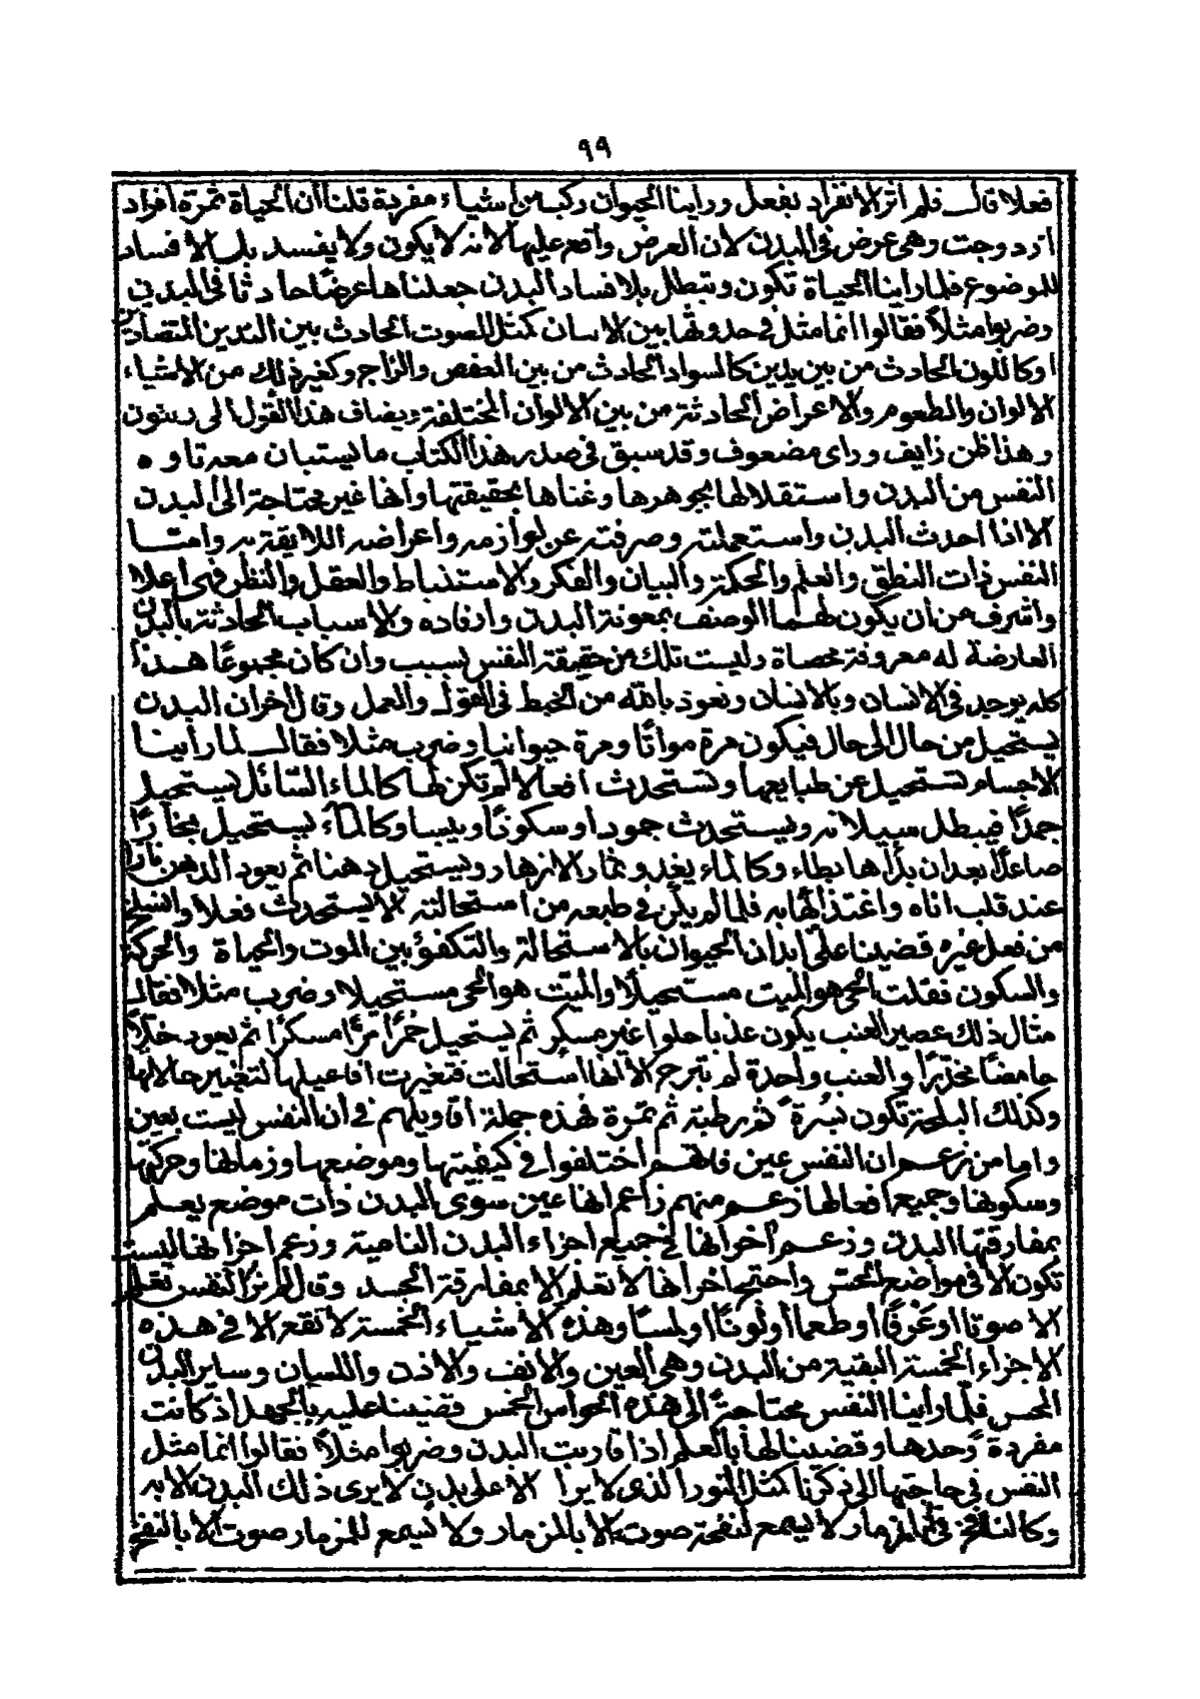 ٩٩
فعلا قال فلم ار الانفراد بفعل وراينا الحيوان ركب من اشياء مفردة قلنا أن الحياة ثمرة افراد
ازدوجت وهى عرض فى البدن لان العرض واقع عليها لانه لا يكون ولا يفسد بل الافساد
للموضوع فلما راينا الحياة تكون وتبطل بلا فساد البدن جعلناها عرضًا حادثا فى البدن
وضربوا مثلاً فقالوا انما مثل فى حدوثها بين الانسان كمثل الصوت الحادث بين اليدين المتصادتين
اوكاللون الحادث من بين يدين كالسواد الحادث من بين العفص والزاج وكغير ذلك من الاشياء
الالوان والطعوم والاعراض الحادثة من بين الالوان المختلفة ويضاف هذا القول الى
وهذا ظن زايف وراى مضعوف وقد سبق فى صدر هذا الكتاب ما يستبان معه
النفس من البدن واستقلالها بجوهرها وغناها بحقيقتها وانها غير محتاجة الى البدن
الا اذا احدث البدن واستعملته وصرفته عن لوازمه واعراضه اللايقة به وامّا
النفس ذات النطق والعلم والحكمة والبيان والفكر والاستنباط والعقل والنظر فهى اعلا
واشرف من ان يكون لهما الوصف بمعونة البدن وارفاده والاسباب الحادثة بالبدن
العارضة له معروفة محصاة وليست تلك من حقيقة النفس بسبب وان كان مجموعًا هذا
كله يوجد فى الانسان وبالانسان ونعوذ بالله من الخبط فى القول والعمل وقال اخر ان البدن
يستحيل من حال الى حال فيكون مرة مواتًا ومرة حيوانيا وضرب مثلا فقال لما راينا
الاجسام تستحيل عن طبايعها وتستحدث افعالا لم تكن لها كالماء السّائل يستحيل
جمدًا فيبطل سيلانه ويستحدث جمودا وسكونًا ويبسا وكالماء يستحيل بخارًا
صاعدًا بعد ان بدأ هابطاء وكالماء يغذو ثمار الازهار ويستحيل دهنا ثم يعود الدهن نارا
عند قلب اناه واغتذائها به فلما لم يكن فى طبعه من استحالته الا يستحدث فعلا وانسلخ
من فعل غيره قضينا على ابدان الحيوان بالاستحالة والتكفؤ بين الموت والحياة والحركة
والسكون فقلت الحى هو الميت مستحيلاً والميّت هو الحى مستحيلا وضرب مثلا فقال
مثال ذلك عصير العنب يكون عذبا حلوا غير مسكر ثم يستحيل خمرًا مرًا مسكرًا ثم يعود خلاً
حامضًا مخدّرًا والعنب واحدة لم تبرح الا انها استحالت فتغيرت افاعيلها لتغيير حالاتها
وكذلك البلحة تكون بُسرة ثم رطبة ثم تمرة فهذه جملة اقاويلهم فى ان النفس ليست بعين
واما من زعم ان النفس عين فانهم اختلفوا فى كيفيتها وموضعها وزمانها وحركتها
وسكونها وجميع افعالها زعم منهم زاعم انها عين سوى البدن ذات موضع يعلم
بمفارقتها البدن وزعم أخر انها فى جميع اجزاء البدن النامية وزعم اخر انها ليست
تكون الا فى مواضع الحس واحتج اخر انها لا تعلم الا بمفارقة الجسد وقال لم نر النفس تعلم
الا صوتا او عَرْفًا او طعما أو لونًا او لمسًا وهذه الاشياء الخمسة لا تقع الا فى هذه
الاجزاء الخمسة البقية من البدن وهى العين والانف والاذن واللسان وساير البدن
المحس فلما راينا النفس محتاجةً الى هذه الحواس الخمس قضينا عليه بالجهل اذ كانت
مفردة وحدها وقضينا لها بالعلم اذا قاربت البدن وضربوا مثلاً فقالوا انما مثل
النفس فى حاجتها الى ذكرنا كمثل النور الذى لا يرا الا على بدن لا يرى ذلك البدن الا به
وكالنافخ فى المزمار لا يسمع لنفخة صوت الا بالمزمار ولا يُسمع للمزمار صوت الا بالنفخ